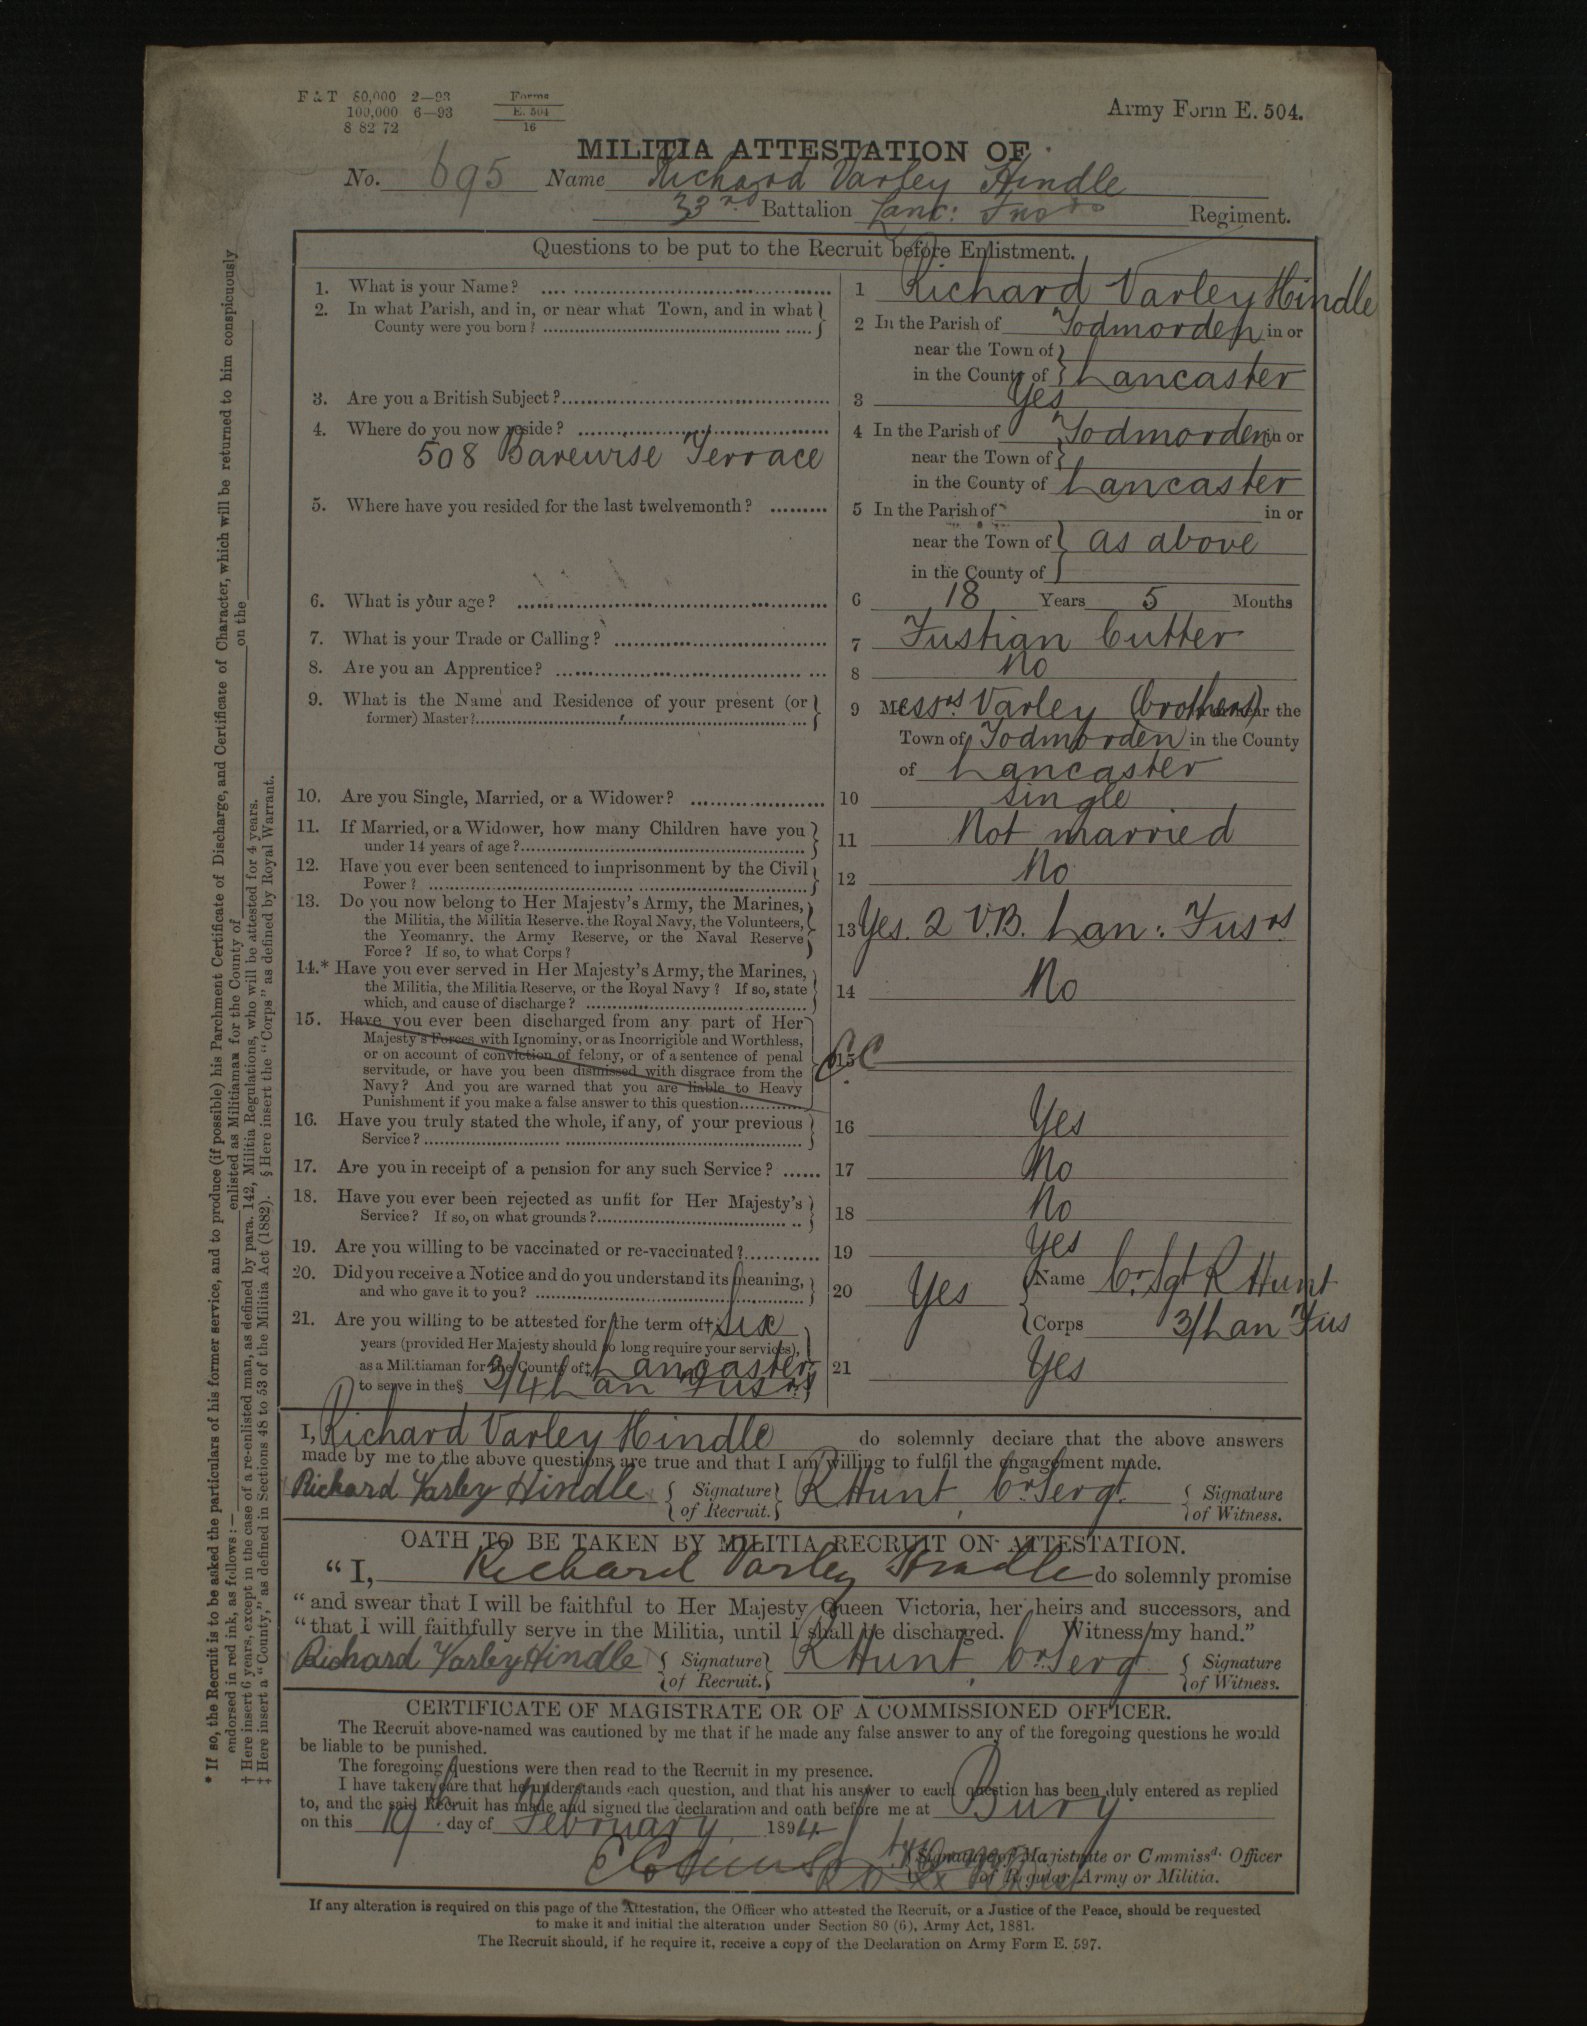 F & T 80,000 2—93
100,000 6—93
8 82 72
Forms
E. 504
16
Army Form E. 504.
MILITIA ATTESTATION OF
No. 695 Name Richard Varley Hindle
33rd Battalion Lanc: Fusrs Regiment.
Questions to be put to the Recruit before Enlistment.
1. What is your Name? 1 Richard Varley Hindle
2. In what Parish, and in, or near what Town, and in what
County were you born? 2 In the Parish of Todmorden in or
near the Town of
in the County of Lancaster
3. Are you a British Subject? 3 Yes
4. Where do you now reside? 4 In the Parish of Todmorden in or
508 Bareurse Terrace near the Town of
in the County of Lancaster
5. Where have you resided for the last twelvemonth? 5 In the Parish of in or
near the Town of as above
in the County of
6. What is your age? 6 18 Years 5 Months
7. What is your Trade or Calling? 7 Fustian Cutter
8. Are you an Apprentice? 8 No
9. What is the Name and Residence of your present (or
former) Master? 9 Messrs Varley (brothers) near the
Town of Todmorden in the County
of Lancaster
10. Are you Single, Married, or a Widower? 10 Single
11. If Married, or a Widower, how many Children have you
under 14 years of age? 11 Not married
12. Have you ever been sentenced to imprisonment by the Civil
Power? 12 No
13. Do you now belong to Her Majesty's Army, the Marines,
the Militia, the Militia Reserve, the Royal Navy, the Volunteers,
the Yeomanry, the Army Reserve, or the Naval Reserve
Force? If so, to what Corps? 13 Yes. 2 V.B. Lan: Fusrs
14.* Have you ever served in Her Majesty's Army, the Marines,
the Militia, the Militia Reserve, or the Royal Navy? If so, state
which, and cause of discharge? 14 No
15. Have you ever been discharged from any part of Her
Majesty's Forces with Ignominy, or as Incorrigible and Worthless,
or on account of conviction of felony, or of a sentence of penal
servitude, or have you been dismissed with disgrace from the
Navy? And you are warned that you are liable to Heavy
Punishment if you make a false answer to this question 15
16. Have you truly stated the whole, if any, of your previous
Service? 16 Yes
17. Are you in receipt of a pension for any such Service? 17 No
18. Have you ever been rejected as unfit for Her Majesty's
Service? If so, on what grounds? 18 No
19. Are you willing to be vaccinated or re-vaccinated? 19 Yes
20. Did you receive a Notice and do you understand its meaning,
and who gave it to you? 20 Yes Name Cr Sgt R Hunt
Corps 3/Lan Fus
21. Are you willing to be attested for the term of † Six
years (provided Her Majesty should so long require your services),
as a Militiaman for the County of ‡ Lancaster
to serve in the § 3/4 Lan Fusrs 21 Yes
I, Richard Varley Hindle do solemnly declare that the above answers
made by me to the above questions are true and that I am willing to fulfil the engagement made.
Richard Varley Hindle Signature of Recruit. R Hunt, Cr Sergt. Signature of Witness.
OATH TO BE TAKEN BY MILITIA RECRUIT ON ATTESTATION.
"I, Richard Varley Hindle do solemnly promise
"and swear that I will be faithful to Her Majesty Queen Victoria, her heirs and successors, and
"that I will faithfully serve in the Militia, until I shall be discharged. Witness my hand."
Richard Varley Hindle Signature of Recruit. R Hunt, Cr Sergt Signature of Witness.
CERTIFICATE OF MAGISTRATE OR OF A COMMISSIONED OFFICER.
The Recruit above-named was cautioned by me that if he made any false answer to any of the foregoing questions he would
be liable to be punished.
The foregoing questions were then read to the Recruit in my presence.
I have taken care that he understands each question, and that his answer to each question has been duly entered as replied
to, and the said Recruit has made and signed the declaration and oath before me at Bury
on this 19th day of February 1894
Signature of Magistrate or Commissd. Officer
of Regular Army or Militia.
If any alteration is required on this page of the Attestation, the Officer who attested the Recruit, or a Justice of the Peace, should be requested
to make it and initial the alteration under Section 80 (6), Army Act, 1881.
The Recruit should, if he require it, receive a copy of the Declaration on Army Form E. 597.
* If so, the Recruit is to be asked the particulars of his former service, and to produce (if possible) his Parchment Certificate of Discharge, and Certificate of Character, which will be returned to him conspicuously
endorsed in red ink, as follows:— enlisted as Militiaman for the County of on the
† Here insert 6 years, except in the case of a re-enlisted man, as defined by para. 142, Militia Regulations, who will be attested for 4 years.
‡ Here insert a "County," as defined in Sections 48 to 53 of the Militia Act (1882). § Here insert the "Corps" as defined by Royal Warrant.